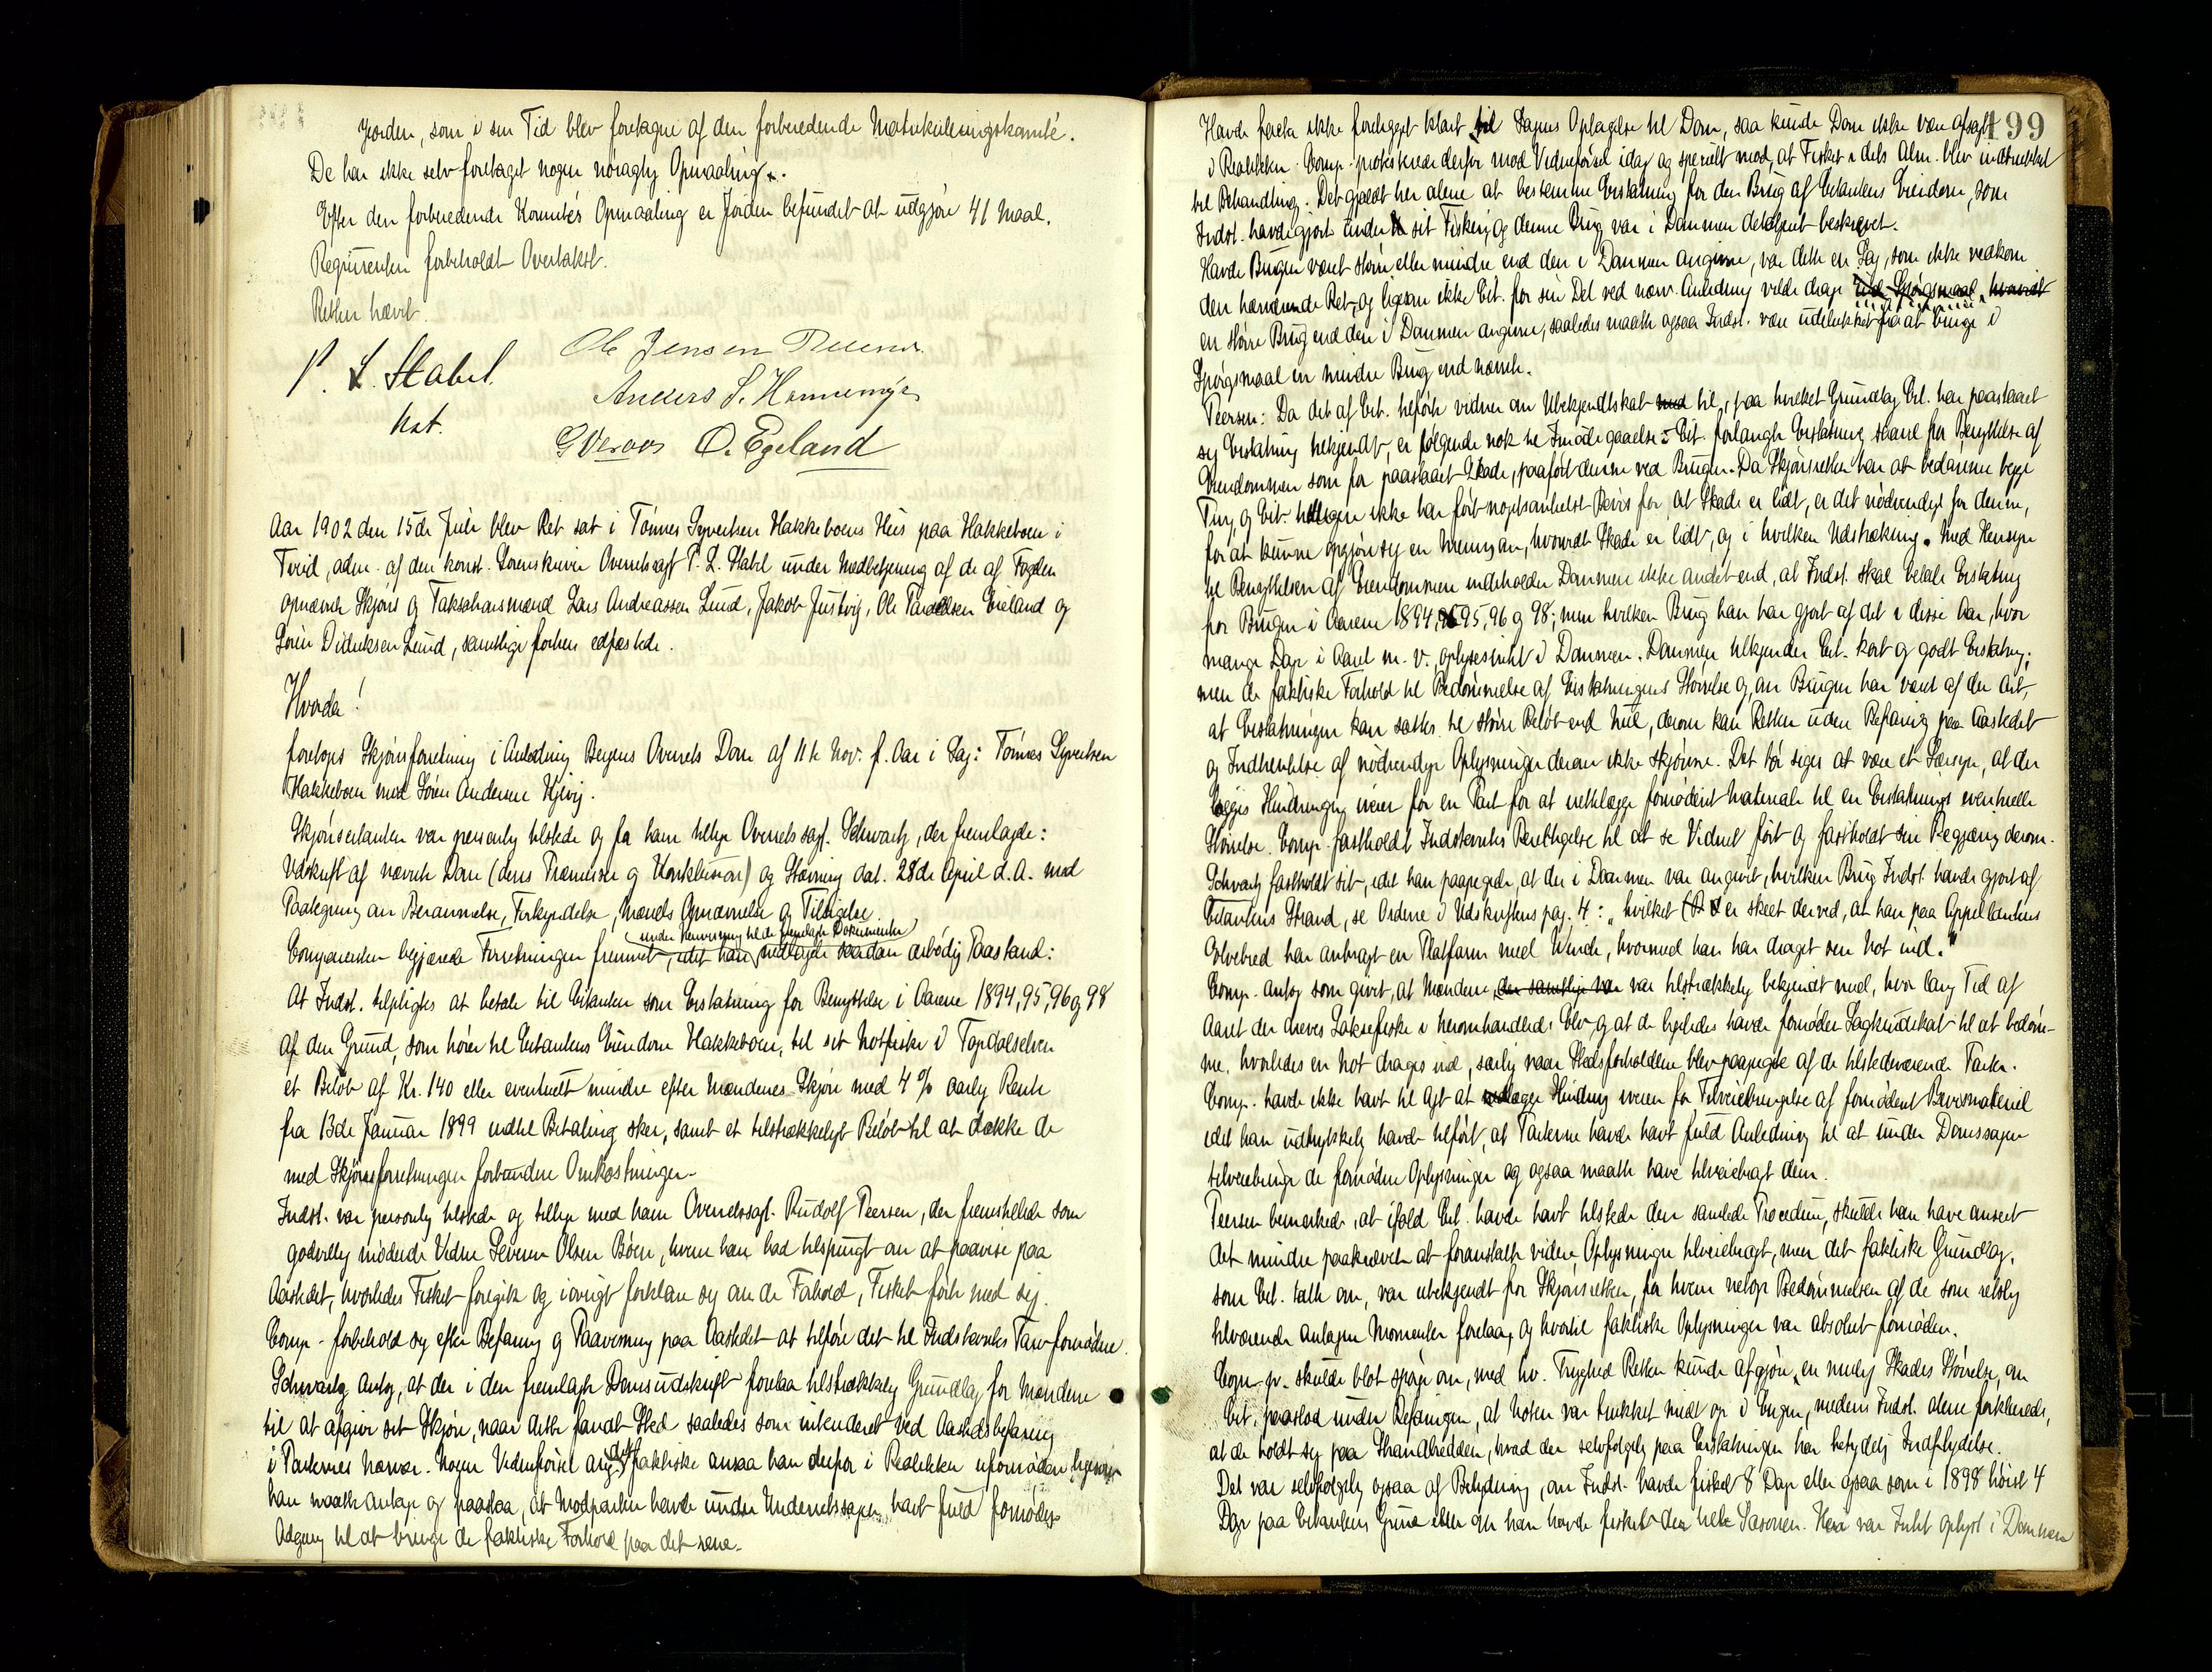 Jorden, som i sin Tid blev foretagne af den forberedende Matrikuleringskomité.
De har ikke selv foretaget nogen nöiagtig Opmaaling.
Efter den forberedende Komités Opmaaling er Jorden befundet at udgjöre 41 Maal.
Reqvirenten forbeholdt Overtakst.
Retten hævet.
P. L. Stabel.
kst.
Ole Jensen
Anders S. Hannemyr
G Veraas O. Egeland
Aar 1902 den 15de Juli blev Ret sat i Tönnes Syvertsen Hakkeboens Hus paa Hakkeboen i
Tveid, adm. af den konst. Sorenskriver Overretssagf. P. L. Stabel under Medbetjening af de af Fogden
opnævnte Skjöns og Taksationsmænd Lars Andreassen Lund, Jakob Justvig, Ole Taraldsen Eieland og
Sören Didriksen Lund, samtlige forhen edfæstede.
Hvorda!
foretoges Skjönsforretning i Anledning Bergens Overrets Dom af 11te Nov. f. Aar i Sag: Tönnes Syvertsen
Hakkeboen mod Sören Andersen Kjevig.
Skjönscitanten var personlig tilstede og for ham tillige Overretssagf. Schwartz, der fremlagde:
Udskrift af nævnte Dom (dens Præmisser og Konklusion) og Stævning dat. 28de April d.A. med
Paategning om Berammelse, Forkyndelse, Mænds Opnævnelse og Tilsigelse.
under Henvisning til de fremlagte Dokumenter
Comparenten begjærede Forretningen fremmet, idet han nedlagde saadan ærbödig Paastand:
At Indst. tilpligtes at betale til Citanten som Erstatning for Benyttelse i Aarene 1894, 95, 96 og 98
af den Grund, som hörer til Citantens Eiendom Hakkeboen, til sit Notfiske i Topdalselven
et Belöb af Kr. 140 eller eventuelt mindre efter Mændenes Skjön med 4 % aarlig Rente
fra 13de Januar 1899 indtil Betaling sker, samt et tilstrækkeligt Belöb til at dække de
med Skjönsforretningen forbundne Omkostninger.
Indst. var personlig tilstede og tillige med ham Overretssagf. Rudolf Peersen, der fremstillede som
godvillig mödende Vidne Severin Olsen Böen, hvem han bad tilspurgt om at paavise paa
Aastedet, hvorledes Fisket foregik og iövrigt forklare sig om de Forhold, Fisket förte med sig.
Comp. forbeholdt sig efter Befaring og Paavisning paa Aastedet at tilföre det til Indstævntes Tarv fornödne.
Schwartz antog, at der i den fremlagte Domsudskrift forelaa tilstrækkelig Grundlag for Mændene
til at afgive sit Skjön, naar dette fandt Sted saaledes som intenderet ved Aastedsbefaring
i Parternes Nærvær. Nogen Vidneförsel ang. det faktiske ansaa han derfor i Realiteten ufornöden, ligesom
han maatte antage og paastaa, at Modparten havde under Underretssagen havt fuld fornöden
Adgang til at bringe de faktiske Forhold paa det rene.
199
Havde ikke foreligget klart til Sagens Optagelse til Dom, saa kunde Dom ikke være afsagt
i Realiteten. Comp. protesterede derfor mod Vidneförsel idag og specielt mod, at Fisket i dets Alm. blev indtrukket
til Behandling. Det gjældt her alene at bestemme Erstatning for den Brug af Citantens Eiendom, som
Indst. havde gjort under sit Fiskeri, og denne Brug var i Dommen detaljeret beskrevet.
Havde Brugen været större eller mindre end den i Dommen angivne, var dette en Sag, som ikke vedkom
den nærværende Ret, og ligesom ikke Cit. for sin Del ved nærv. Anledning vilde drage ind Spörgsmaal, hvorvidt
en större Brug end den i Dommen angivne, saaledes maatte ogsaa Indst. være udelukket fra at bringe i
Spörgsmaal en mindre Brug end nævnte.
Peersen: Da det af Cit. tilförte vidner om Ubekjendtskab med til, paa hvilket Grundlag Cit. har paastaaet
sig Erstatning tilkjendt, er fölgende nok til Imödegaaelse: Cit. forlangte Erstatning saavel for Benyttelse af
Eiendommen som for paastaaet Skade, paafört denne ved Brugen. Da Skjönsretten har at bedömme begge
Ting, og Cit. tidligere ikke har fört nogetsomhelst Bevis for at Skade er lidt, er det nödvendigt for denne,
for at kunne opgjöre sig en Mening om, hvorvidt Skade er lidt, og i hvilken Udstrækning. Med Hensyn
til Benyttelsen af Eiendommen indeholder Dommen ikke andet end, at Indst. skal betale Erstatning
for Brugen i Aarene 1894, 95, 96 og 98; men hvilken Brug han har gjort af det i disse Aar, hvor
mange Dage i Aaret m. v., oplyses intet i Dommen. Dommen tilkjender Cit. kort og godt Erstatning;
men de faktiske Forhold til Bedömmelse af Erstatningens Störrelse og om Brugen har været af den Art,
at Erstatningen kan sættes til större Belöb end Nul, derom kan Retten uden Befaring paa Aastedet
og Indhentelse af nödvendige Oplysninger derom ikke skjönne. Det tör siges at være et Særsyn, at der
lægges Hindringer iveien for en Part for at tilrettelægge fornödent Materiale til en Erstatnings eventuelle
Störrelse. Comp. fastholdt Indstævntes Berettigelse til at se Vidnet fört og fastholdt sin Begjæring derom.
Schwartz fastholdt sit, idet han paapegede, at der i Dommen var angivet, hvilken Brug Indst. havde gjort af
Citantens Strand, se Ordene i Udskriftens pag. 4: „hvilket er skeet derved, at han paa Appellantens
Elvebred har anbragt en Platform med Winde, hvormed han har draget sin Not ind."
Comp. antog som givet, at Mændene, der samtlige var var tilstrækkelig bekjendt med, hvor lang Tid af
Aaret der dreves Laksefiske i heromhandlede Elv og at de ligeledes havde fornöden Sagkundskab til at bedöm-
me, hvorledes en Not drages ind, særlig naar Stedsforholdene blev paapegte af de tilstedeværende Parter.
Comp. havde ikke havt til Agt at lægge Hindring iveien for Tilveiebringelse af fornödent Bevismateriel
idet han udtrykkelig havde tilfört, at Parterne havde havt fuld Anledning til at under Domssagen
tilveiebringe de fornödne Oplysninger og ogsaa maatte have tilveiebragt dem.
Peersen bemærkede, at ifald Cit. havde havt tilstede den samlede Procedure, skulde han have anseet
det mindre paakrævet at foranstalte videre Oplysninger tilveiebragt, men det faktiske Grundlag,
som Cit. talte om, var ubekjendt for Skjönsretten, for hvem netop Bedömmelsen af de som retslig
tilværende antagne Momenter forelaa, og hvortil faktiske Oplysninger var absolut fornöden.
Comp. skulde blot spörge om, med hv. Tryghed Retten kunde afgjöre en mulig Skades Störrelse, om
Cit. paastod under Befaringen, at Noten var trukket midt op i Engen, medens Indst. alene forklarede,
at de holdt sig paa Strandbredden, hvad der selvfölgelig paa Erstatningen har betydelig Indflydelse.
Det var selvfölgelig ogsaa af Betydning, om Indst. havde fisket 8 Dage eller ogsaa som i 1898 höist 4
Dage paa Citantens Grund eller om han havde fisket den hele Sæsonen. Herom var Intet oplyst i Dommen